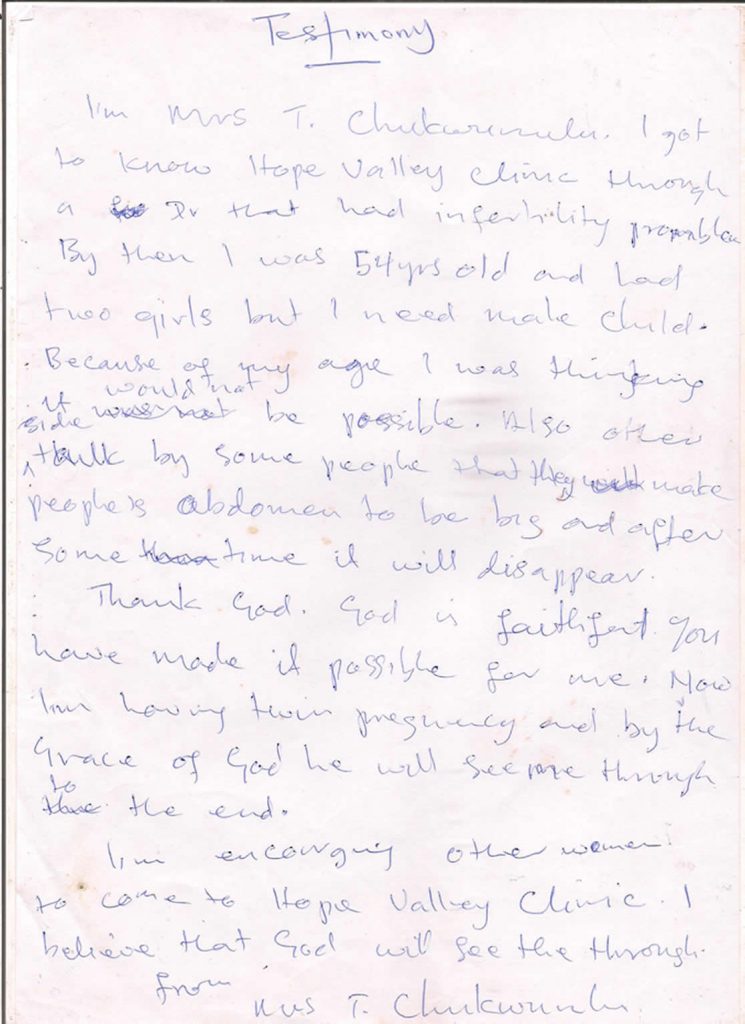 Testimony
I'm Mrs T. I got
to know Hope Valley Clinic through
a Dr that had infertility
By then I was 54yrs old and had
two girls but I need male child.
Because of my age I was thinking
it would not
side be possible. Also other
talk by some people that they make
people's abdomen to be big and after
some time it will disappear.
Thank God. God is You
have made it possible for me. Now
I'm having twin pregnancy and by the
Grace of God he will see me through
to
the end.
I'm other women
to come to Hope Valley Clinic. I
believe that God will see the through.
from
Mrs T.